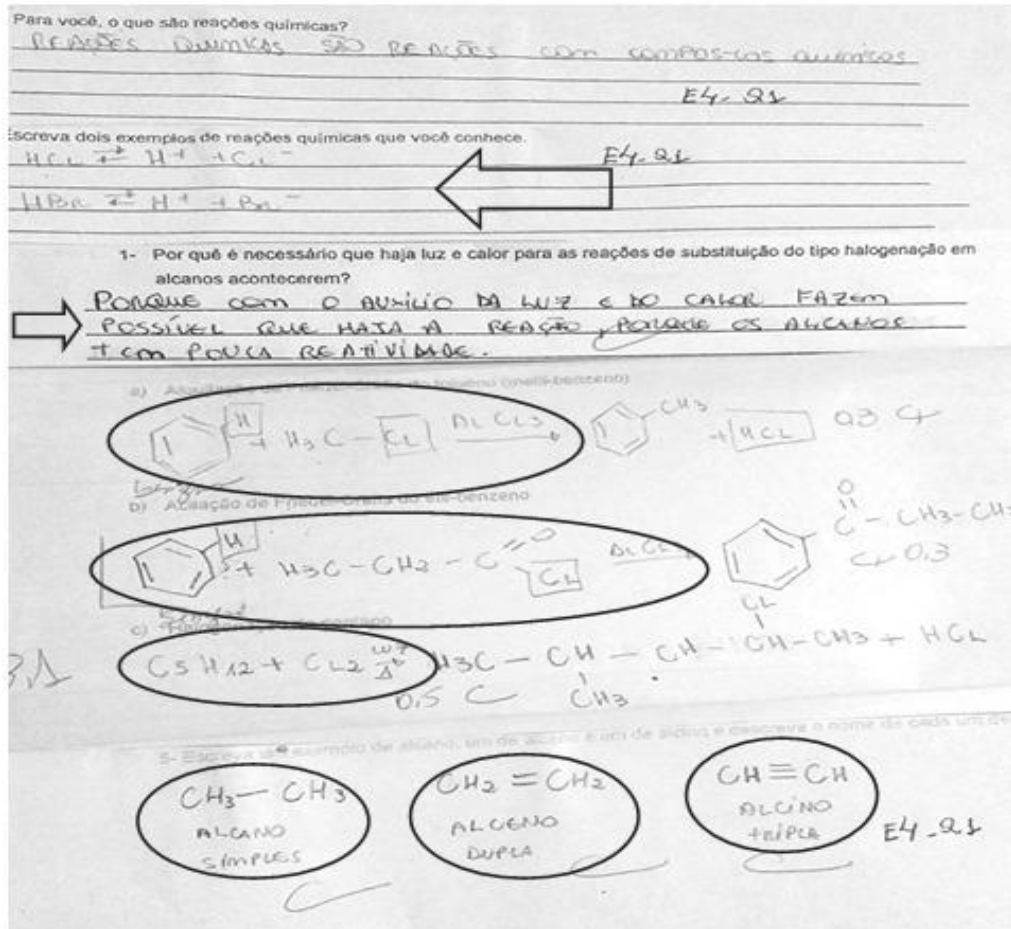 Para você, o que são reações químicas?
REAÇÕES QUIMICAS SÃO REAÇÕES COM COMPOSTOS QUIMICOS
E4-Q1
Escreva dois exemplos de reações químicas que você conhece.
HCL ⇄ H+ + CL-
E4-Q1
HBr ⇄ H+ + Br-
1- Por quê é necessário que haja luz e calor para as reações de substituição do tipo halogenação em
alcanos acontecerem?
PORQUE COM O AUXILIO DA LUZ E DO CALOR FAZEM
POSSÍVEL QUE HAJA A REAÇÃO, PORQUE OS ALCANOS
TEM POUCA REATIVIDADE.
a) do tolueno (metil-benzeno)
H + H3C - CL AL CL3 CH3 + HCL 0,3 C
b) de Friedel-Crafts do etil-benzeno
H + H3C-CH2-C O CL AL CL O C-CH3-CH
C 0,3
c)
C5H12 + CL2 LUZ Δ H3C-CH-CH-CH-CH3 + HCL
CL
CH3
0,5 C
3,1
5- Escreva um exemplo de alcano, um de alceno e um de alcino e descreva o nome de cada um de
CH3-CH3
ALCANO
SIMPLES
CH2=CH2
ALCENO
DUPLA
CH≡CH
ALCINO
TRIPLA
E4-Q1